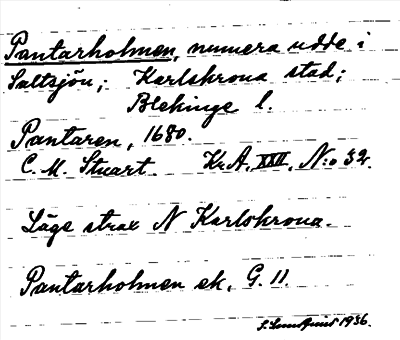 Pantarholmen, numera udde i
Saltsjön,; Karlskrona stad;
Blekinge l.
Pantaren, 1680.
C. M. Stuart KrA, XXII, N:o 32.
Läge strax N Karlskrona.
Pantarholmen ek. G. 11.
S. Lundquist 1936.